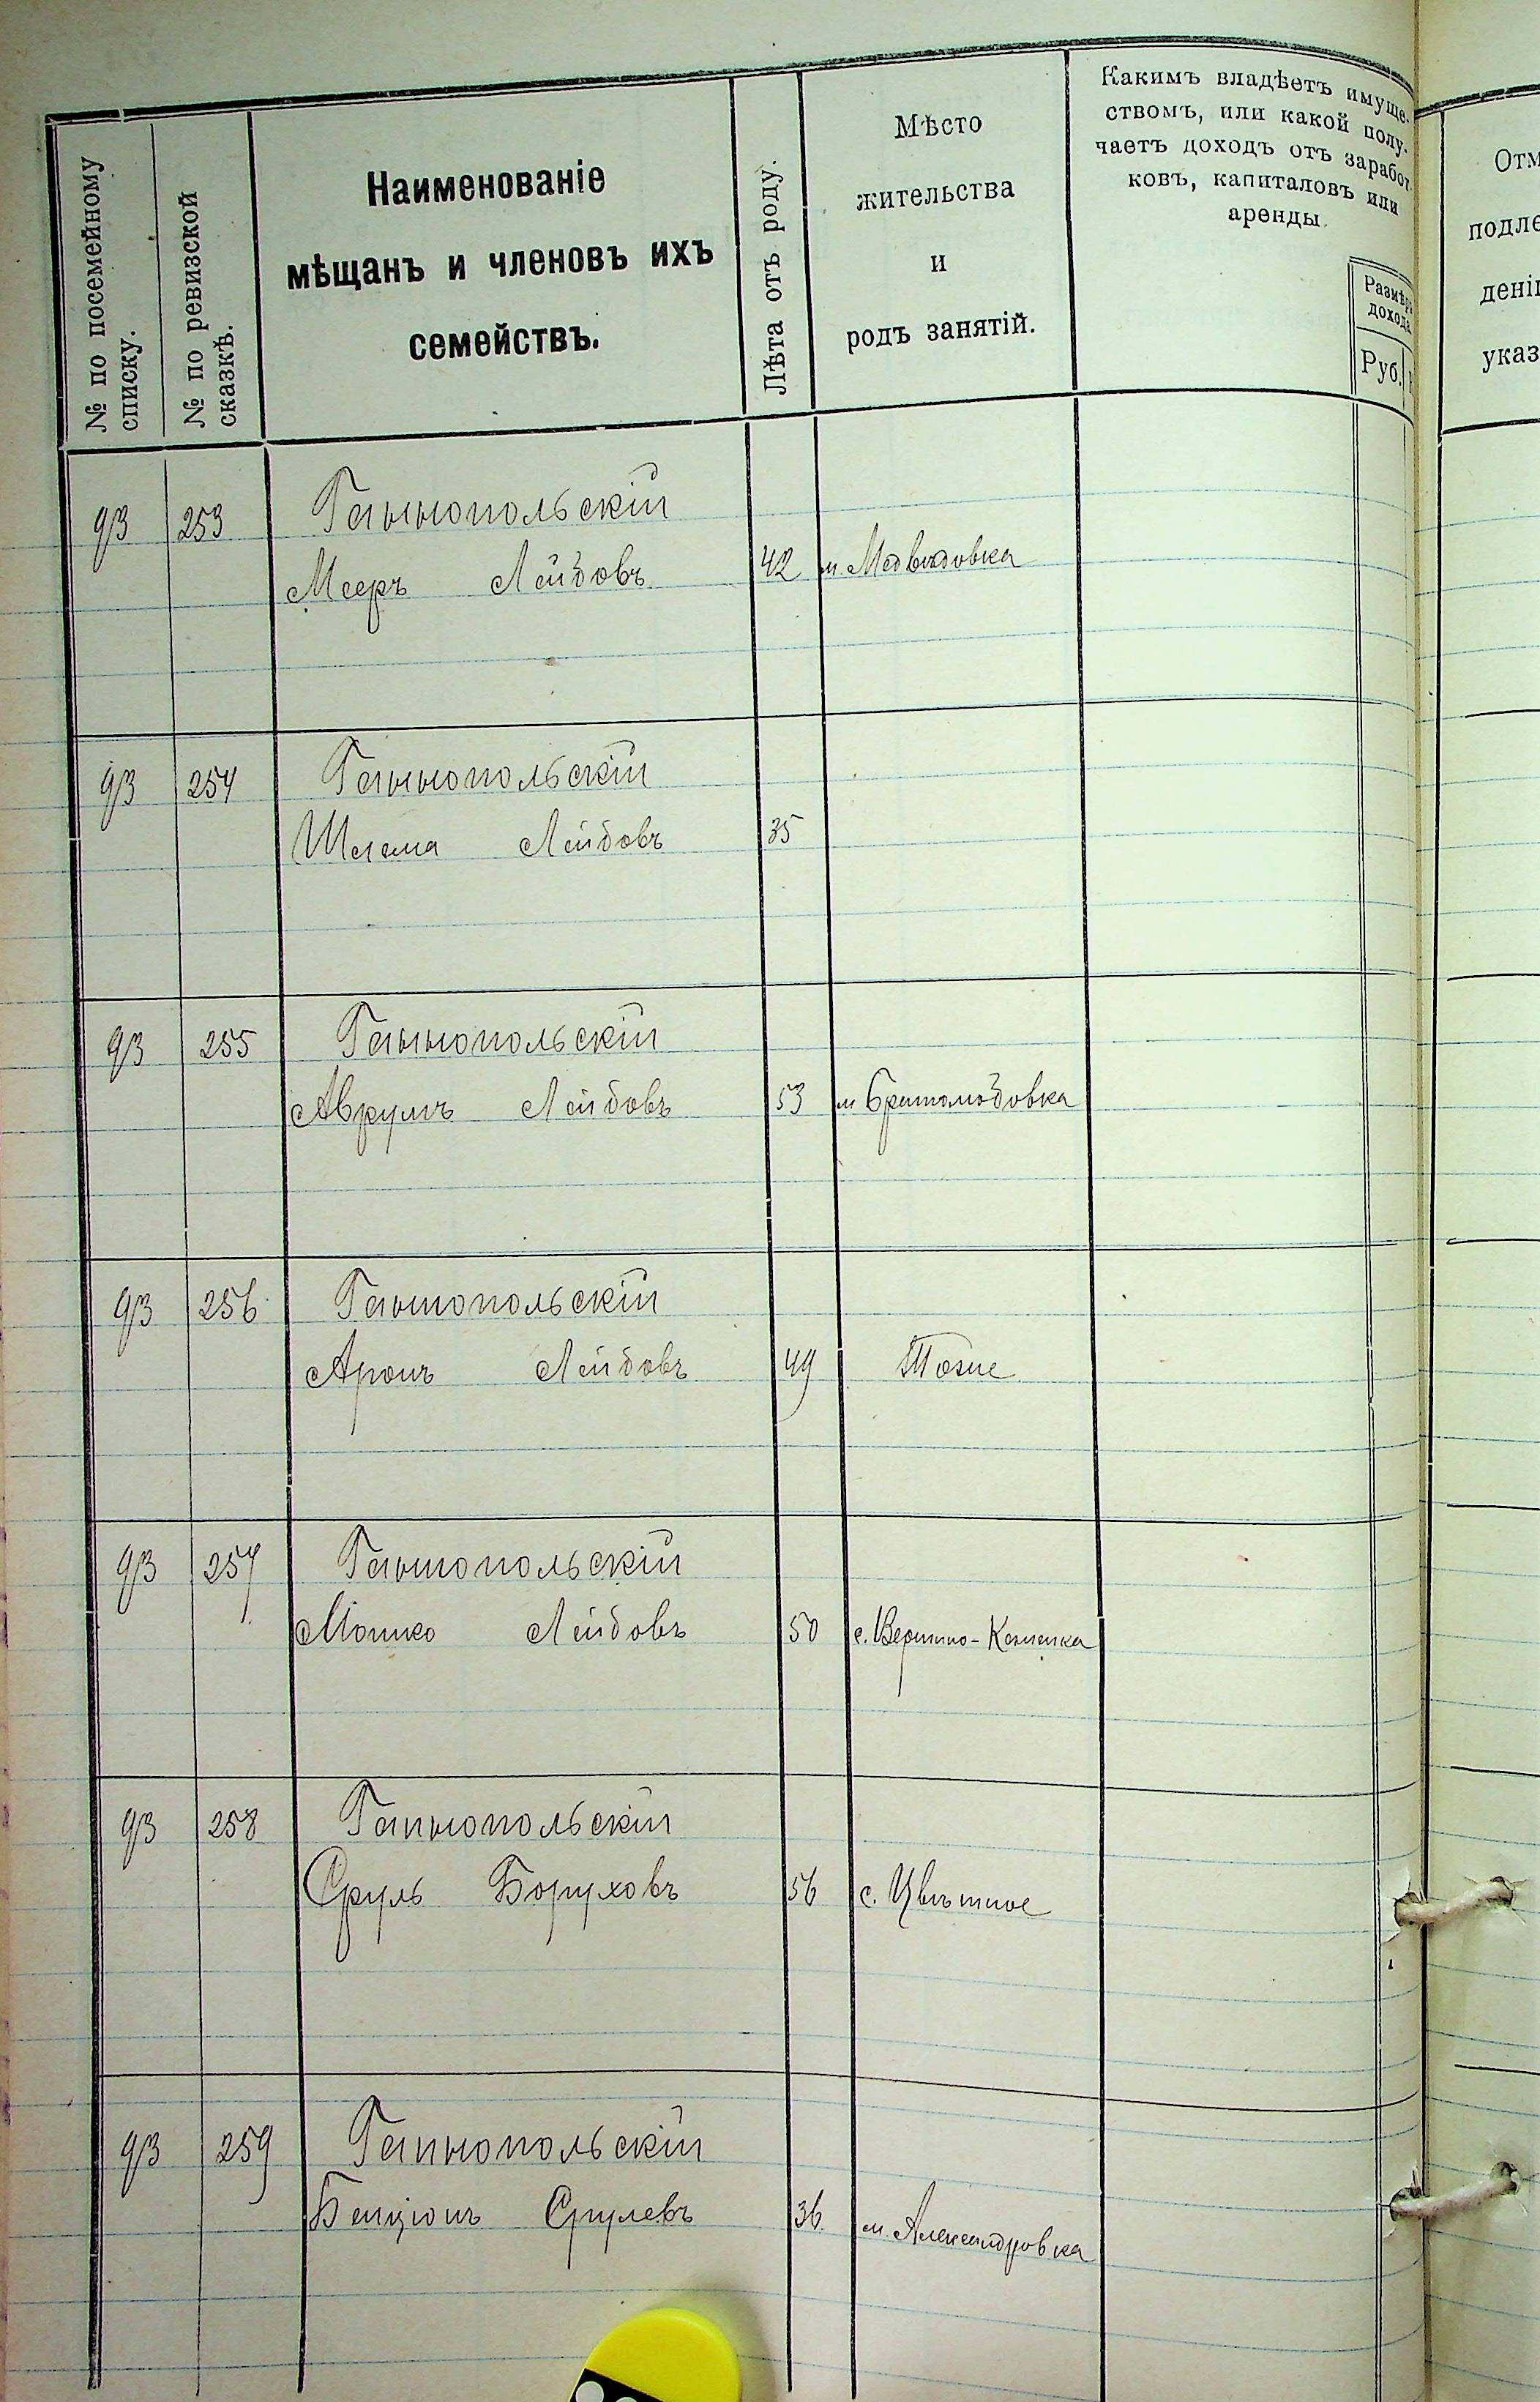 № по посемейному
списку.
№ по ревизской
сказкѣ.
Наименованіе
мѣщанъ и членовъ ихъ
семействъ.
Лѣта отъ роду.
Мѣсто
жительства
и
родъ занятій.
Какимъ владѣетъ имуще-
ствомъ, или какой полу-
чаетъ доходъ отъ заработ-
ковъ, капиталовъ или
аренды.
Размѣръ
дохода.
Руб.
Отм
подле
дені
указ
93 253 Ганнопольскій
Мееръ Лейбовъ 42 м. Медвѣдовка
93 254 Ганнопольскій
Шлема Лейбовъ 35
93 255 Ганнопольскій
Аврумъ Лейбовъ 53 м
93 256 Ганнопольскій
Аронъ Лейбовъ 49 Тоже
93 257 Ганнопольскій
Мошко Лейбовъ 50 с. Вершино-Каменка
93 258 Ганнопольскій
Сруль Боруховъ 56 с. Цвѣтное
93 259 Ганнопольскій
Бенціонъ Срулевъ 36 м. Александровка